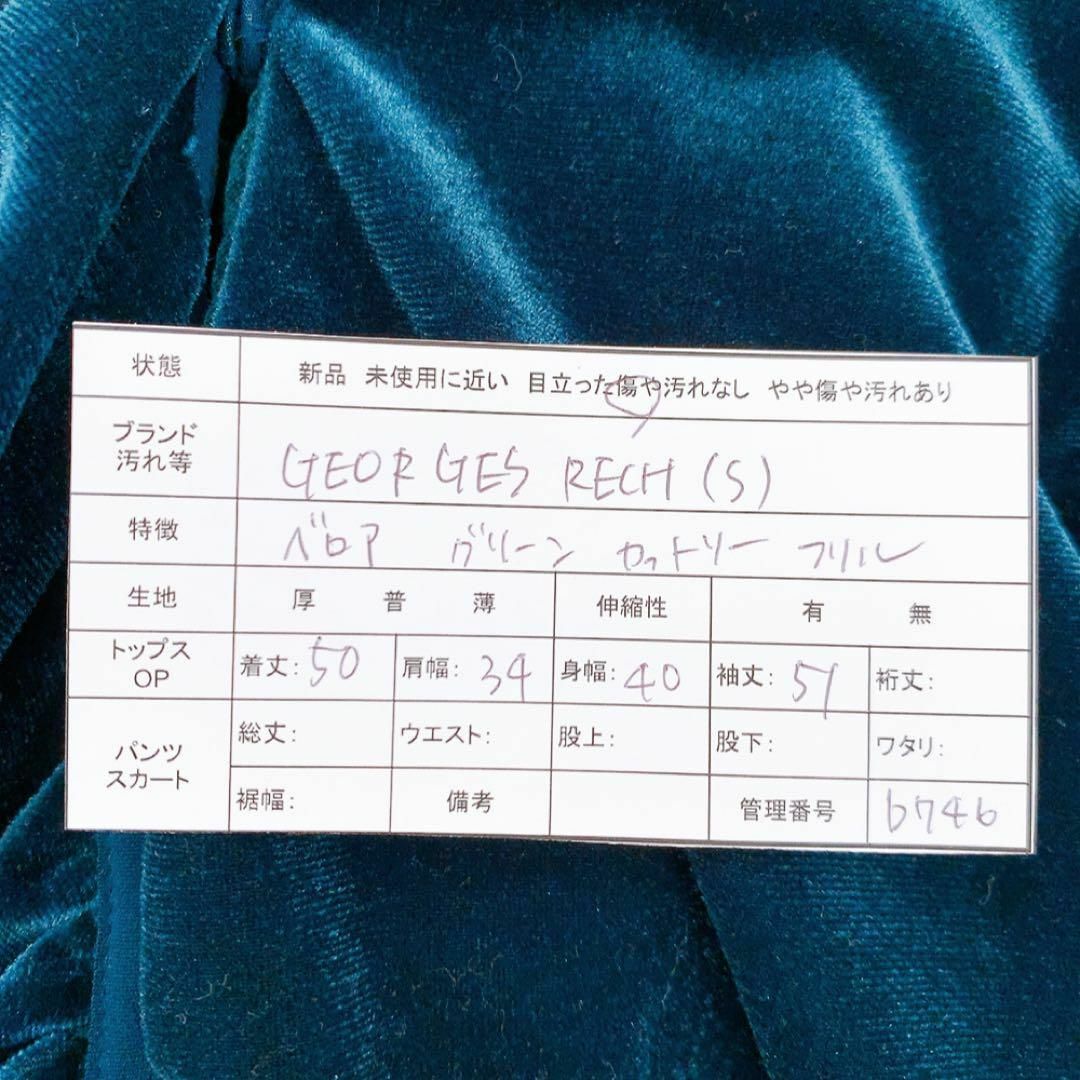 状態 新品 未使用に近い 目立った傷や汚れなし やや傷や汚れあり
ブランド
汚れ等 GEORGES RECH (S)
特徴 ベロア グリーン カットソー フリル
生地 厚 普 薄 伸縮性 有 無
トップス
OP 着丈: 50 肩幅: 34 身幅: 40 袖丈: 51 裄丈:
パンツ
スカート 総丈: ウエスト: 股上: 股下: ワタリ:
裾幅: 備考 管理番号 6746